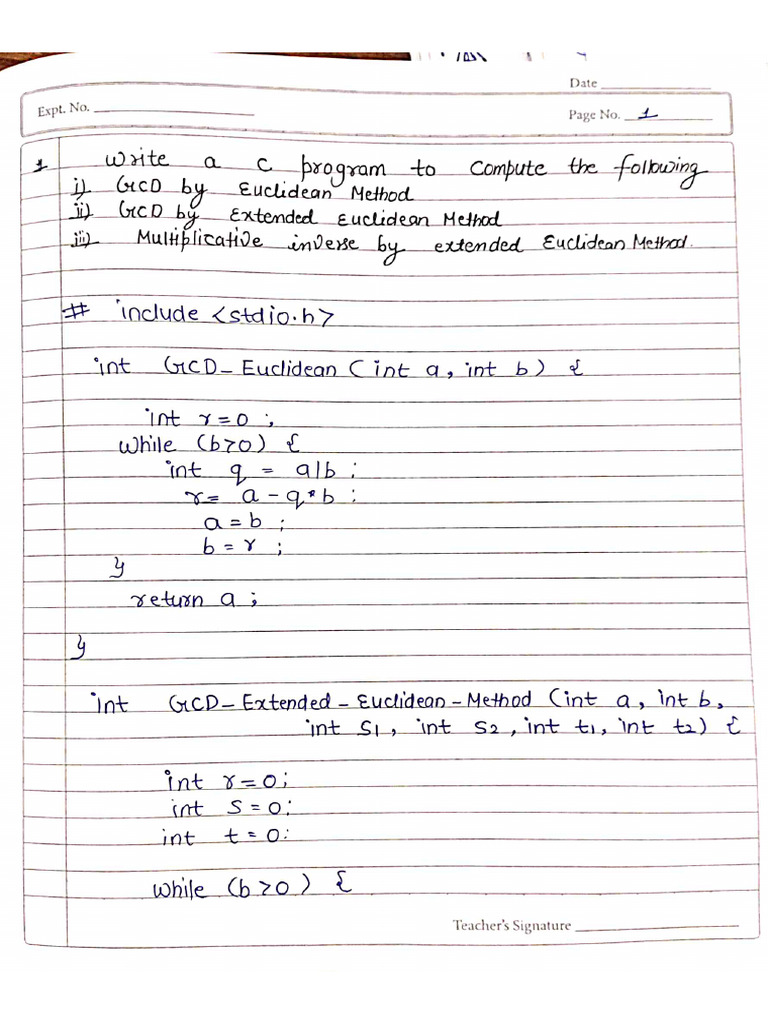 Date
Expt. No.
Page No. 1
1 Write a C program to compute the following
i) GCD by Euclidean Method
ii) GCD by Extended Euclidean Method
iii) Multiplicative inverse by extended Euclidean Method.
# include <stdio.h>
int GCD_Euclidean (int a, int b) {
int r=0 ;
while (b>0) {
int q = a/b ;
r= a - q*b ;
a = b ;
b = r ;
}
return a ;
}
int GCD_Extended_Euclidean_Method (int a, int b,
int s1, int s2, int t1, int t2) {
int r=0;
int s=0;
int t=0;
while (b>0) {
Teacher's Signature